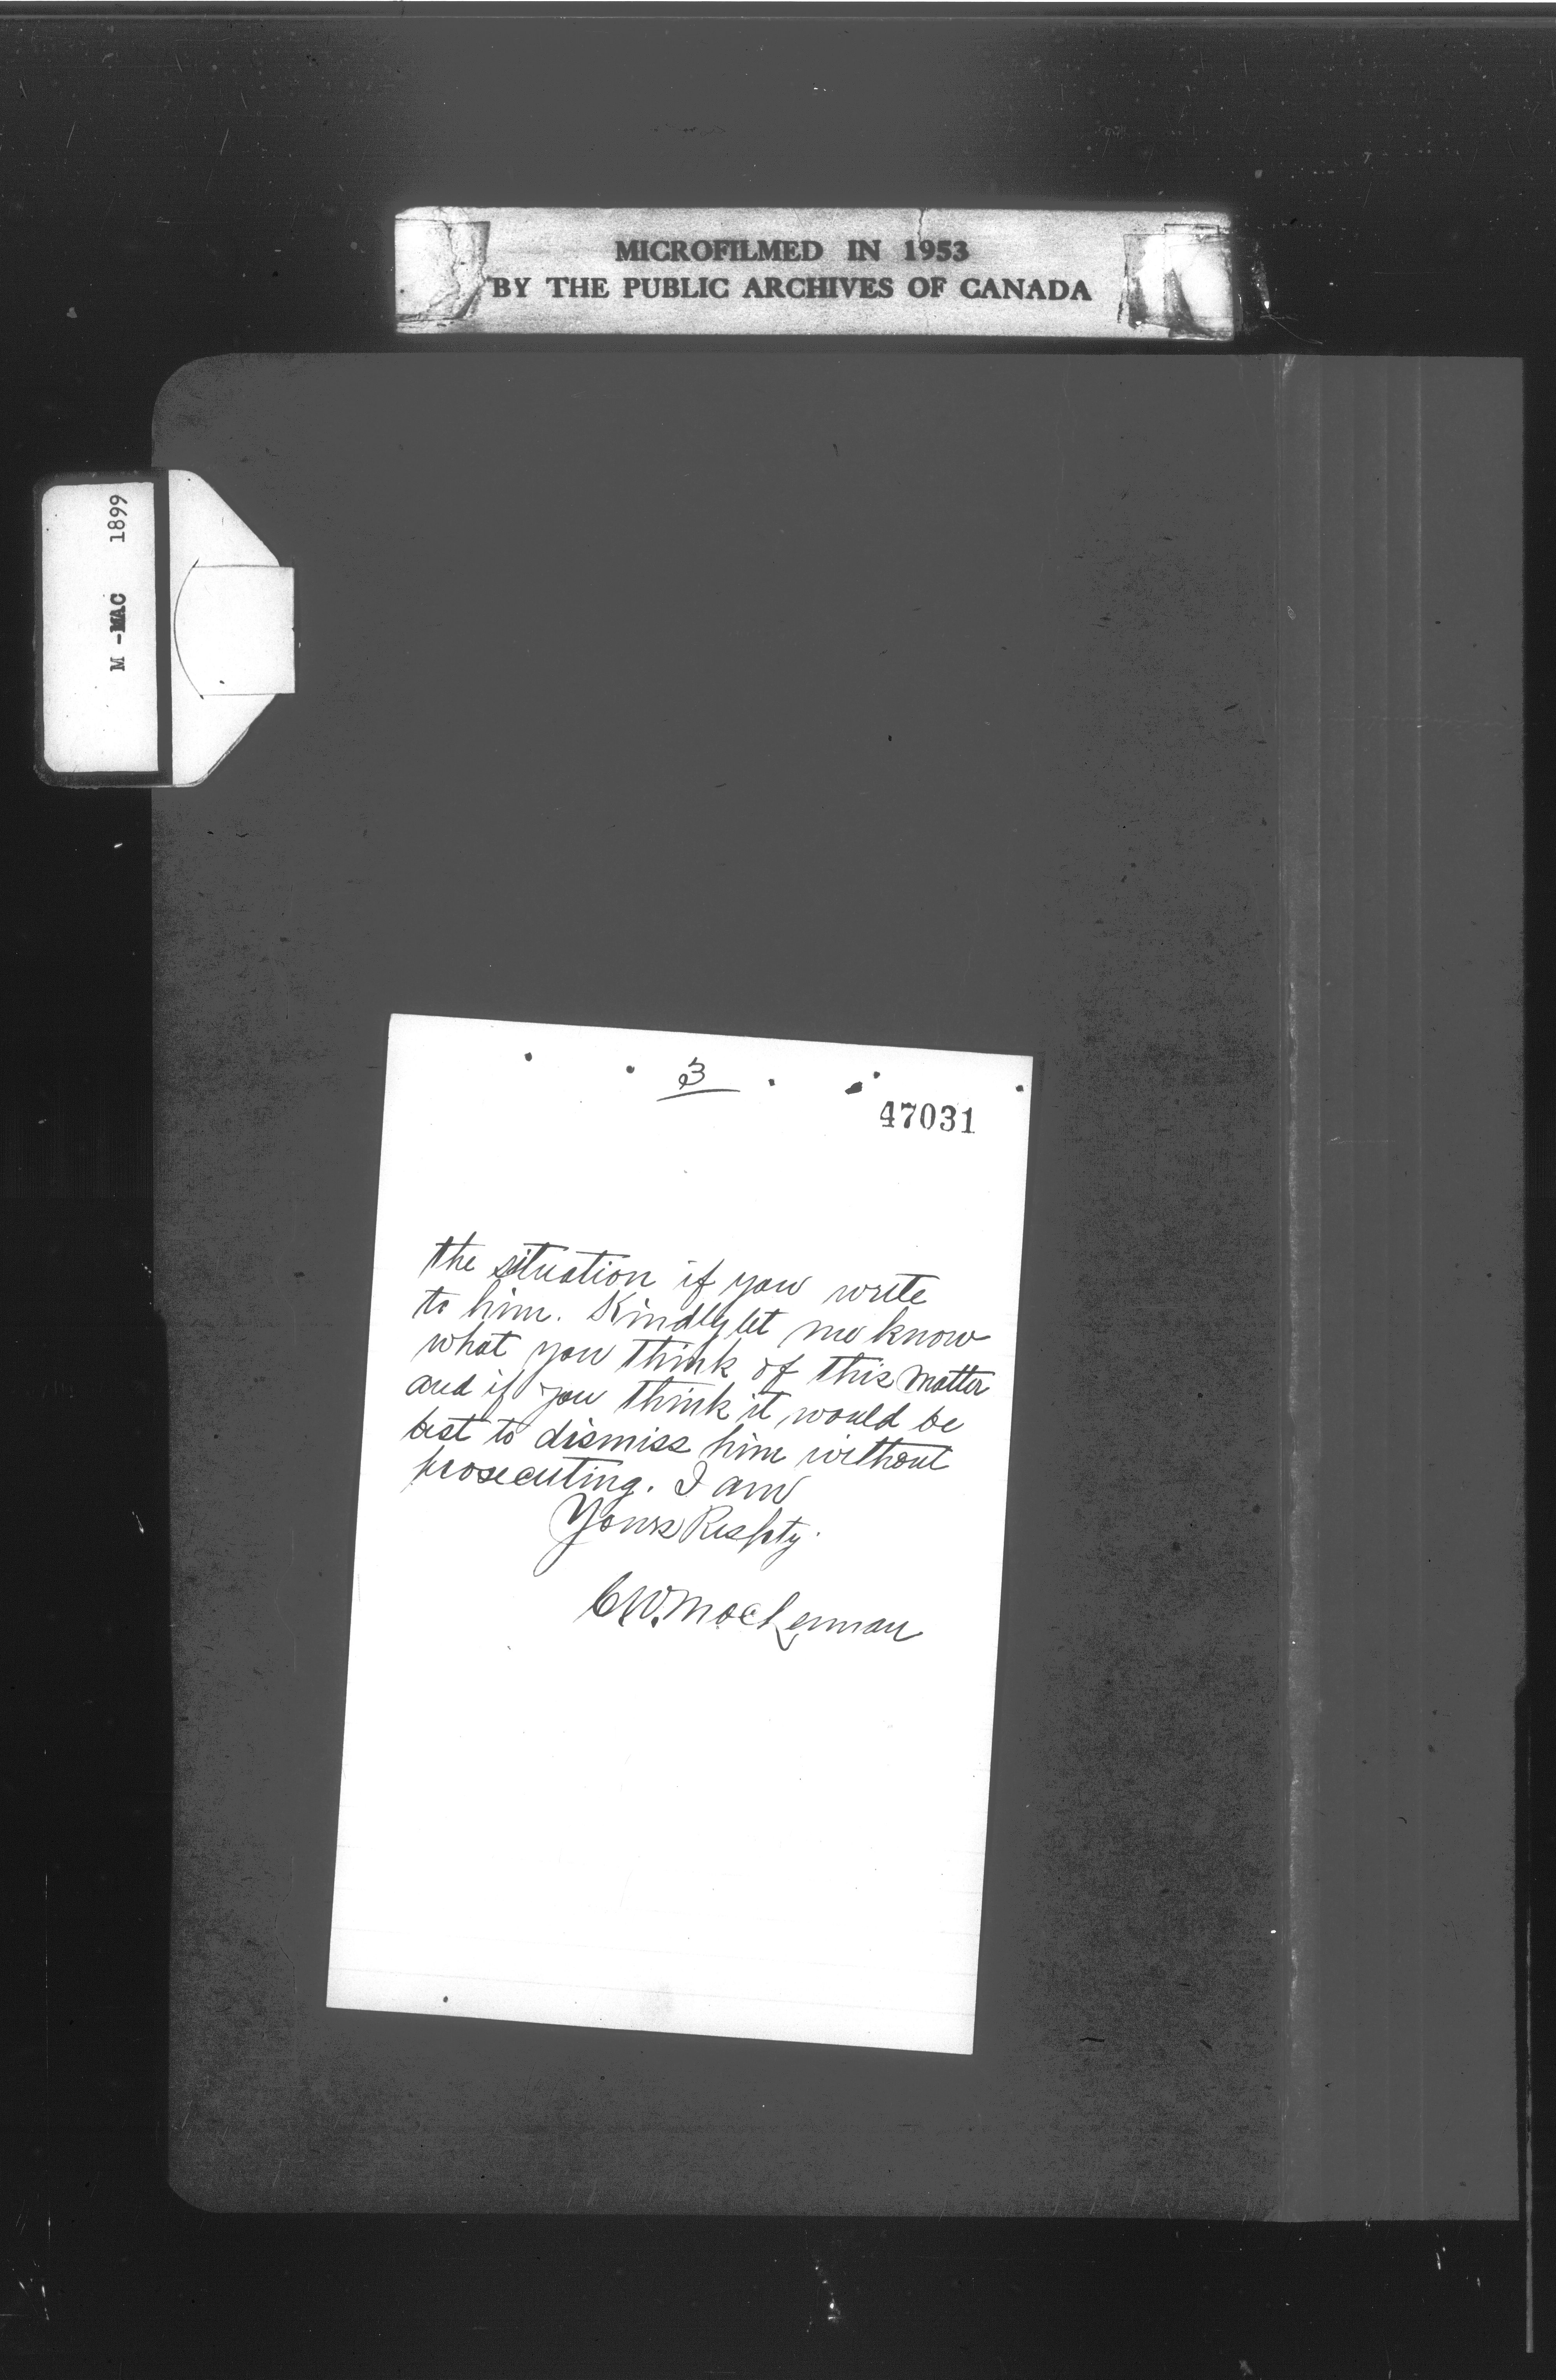 MICROFILMED IN 1953
BY THE PUBLIC ARCHIVES OF CANADA
M - MAC 1899
3
47031
the situation if you write
to him. Kindly let me know
what you think of this matter
and if you think it would be
best to dismiss him without
prosecuting. I am
Yours Respty.
C.W. MacLennan